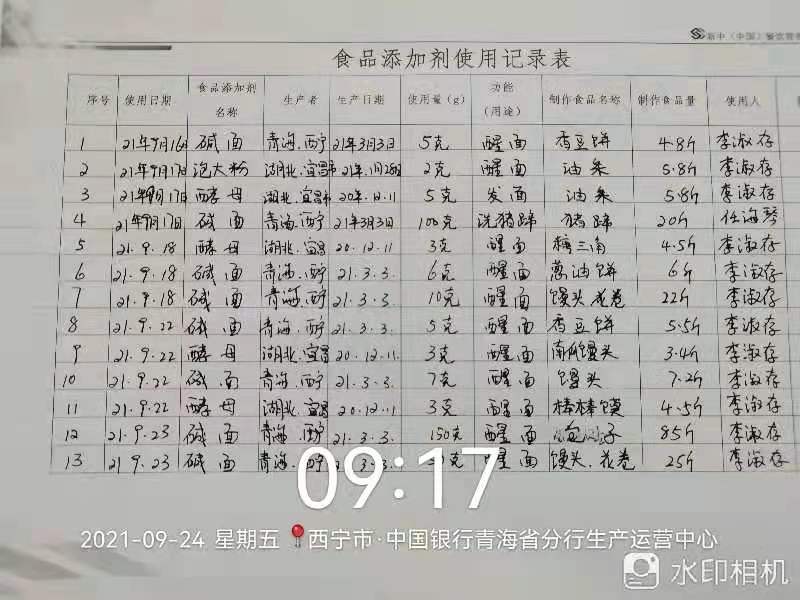 新中(中国)餐饮管
食品添加剂使用记录表
序号 使用日期 食品添加剂名称 生产者 生产日期 使用量(g) 功能(用途) 制作食品名称 制作食品量 使用人
1 21年9月16日 碱面 青海.西宁 21年3月3日 5克 醒面 香豆饼 4.8斤 李淑存
2 21年9月17日 泡大粉 湖北.宜昌市 21年.1月28日 2克 醒面 油条 5.8斤 李淑存
3 21年9月17日 酵母 湖北.宜昌市 20年.12.11 5克 发面 油条 5.8斤 李淑存
4 21年9月17日 碱面 青海.西宁 21年3月3日 100克 洗猪蹄 猪蹄 20斤 任海琴
5 21.9.18 酵母 湖北.宜昌 20.12.11 3克 醒面 糖三角 4.5斤 李淑存
6 21.9.18 碱面 青海.西宁 21.3.3. 6克 醒面 葱油饼 6斤 李淑存
7 21.9.18 碱面 青海.西宁 21.3.3. 10克 醒面 馒头.花卷 22斤 李淑存
8 21.9.22 碱面 青海.西宁 21.3.3. 5克 醒面 香豆饼 5.5斤 李淑存
9 21.9.22 酵母 湖北.宜昌 20.12.11 3克 醒面 南瓜馒头 3.4斤 李淑存
10 21.9.22 碱面 青海.西宁 21.3.3. 7克 醒面 馒头 7.2斤 李淑存
11 21.9.22 酵母 湖北.宜昌 20.12.11 3克 醒面 棒棒馍 4.5斤 李淑存
12 21.9.23 碱面 青海.西宁 21.3.3. 150克 醒面 子 85斤 李淑存
13 21.9.23 碱面 青海.西宁 21.3.3. 克 醒面 馒头.花卷 25斤 李淑存
09:17
2021-09-24 星期五 西宁市·中国银行青海省分行生产运营中心
水印相机